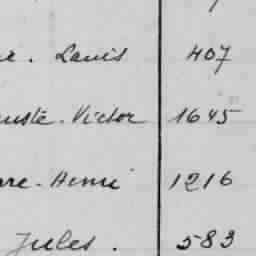 e. Louis 407
uste. Victor 1645
rre. Henri 1216
Jules. 583